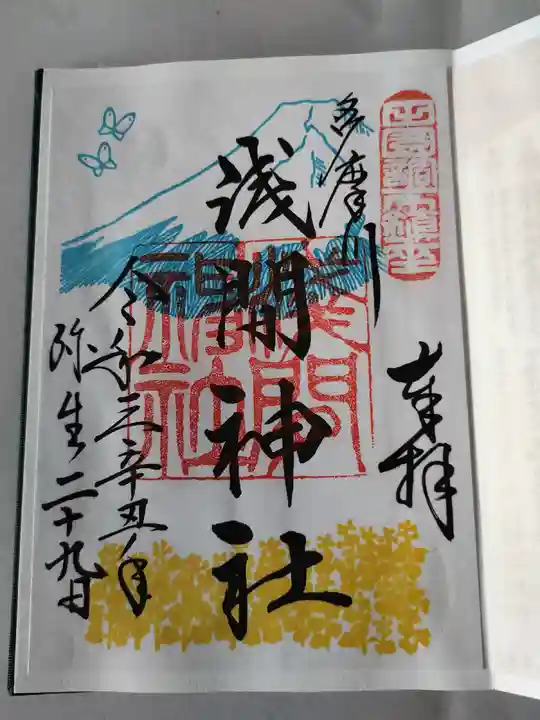 奉拝
多摩川
浅間神社
浅間
神社
令和三辛丑年
弥生二十九日